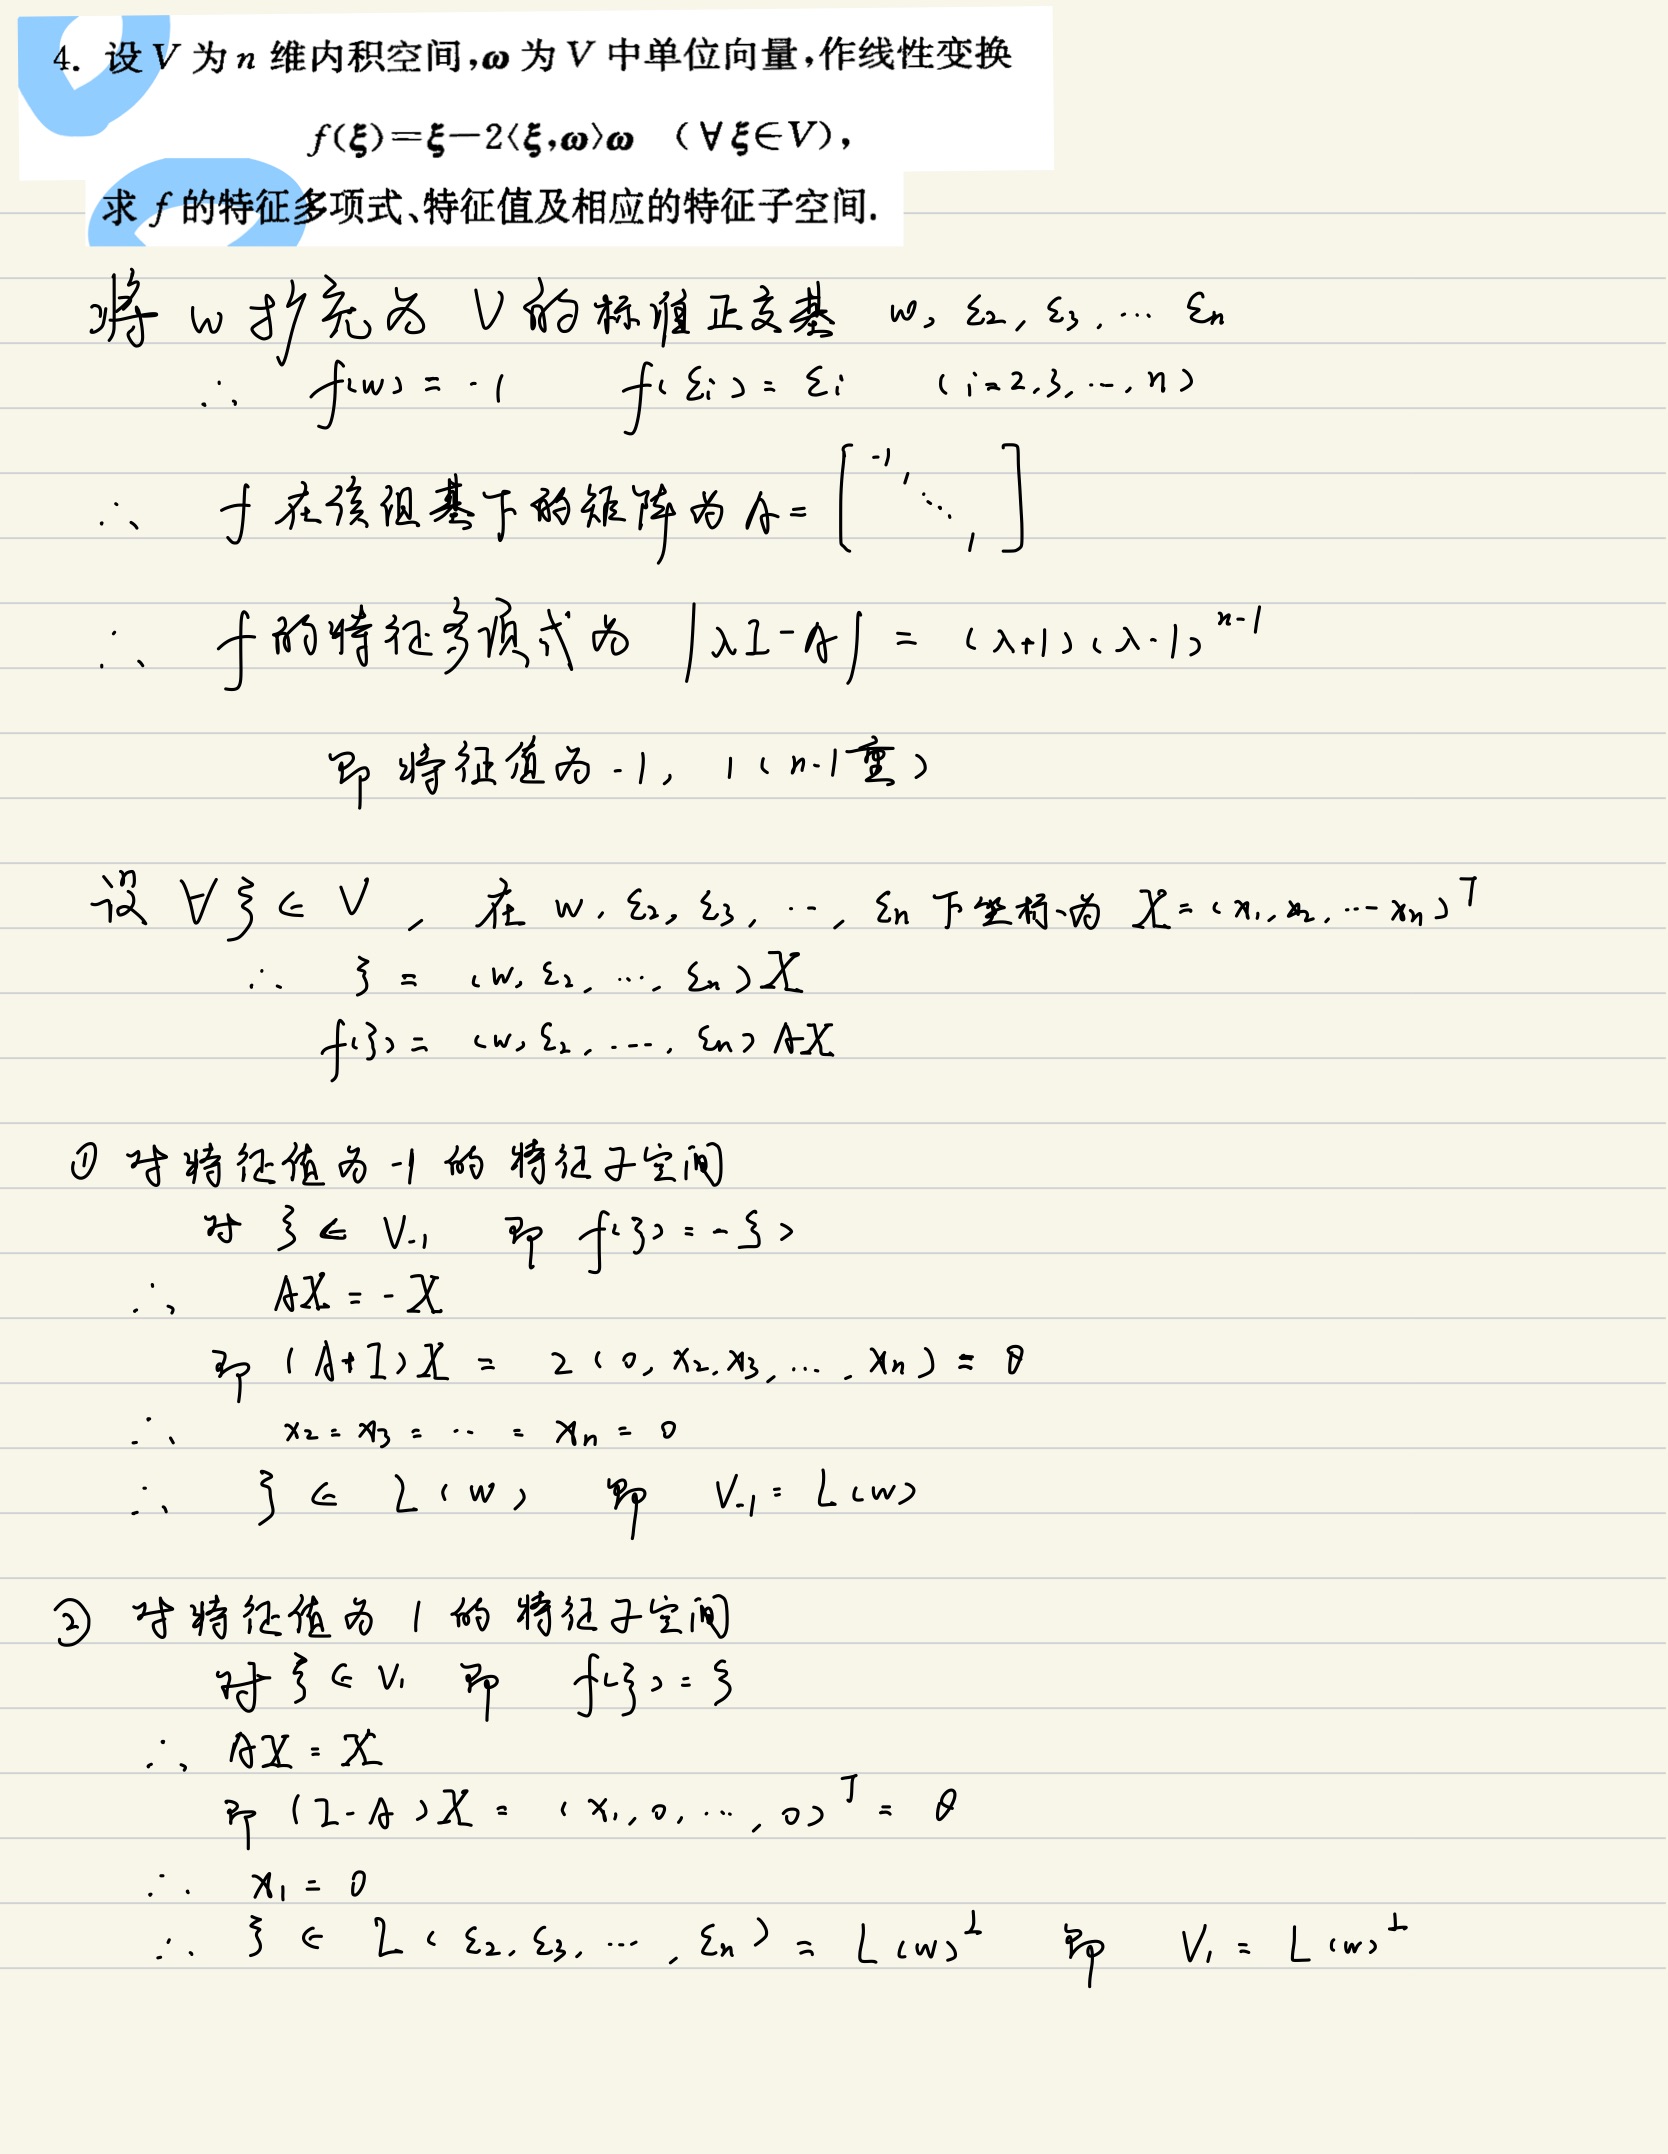 4. 设 V 为 n 维内积空间,ω 为 V 中单位向量,作线性变换
f(ξ)=ξ-2⟨ξ,ω⟩ω (∀ξ∈V),
求 f 的特征多项式、特征值及相应的特征子空间.
将 w 扩充为 V 的标准正交基 w, ε₂, ε₃, … εn
∴ f(w) = -1 f(εi) = εi (i=2,3,…,n)
∴ f 在该组基下的矩阵为 A = [ -1, 1 ⋱ 1 ]
∴ f 的特征多项式为 |λI-A| = (λ+1)(λ-1)ⁿ⁻¹
即 特征值为 -1, 1 (n-1重)
设 ∀ξ∈V, 在 w, ε₂, ε₃, …, εn 下坐标为 X=(x₁,x₂,…xn)ᵀ
∴ ξ = (w, ε₂, …, εn)X
f(ξ) = (w, ε₂, …, εn) AX
① 对特征值为 -1 的特征子空间
对 ξ∈V₋₁ 即 f(ξ) = -ξ
∴ AX = -X
即 (A+I)X = 2(0, x₂, x₃, …, xn) = θ
∴ x₂ = x₃ = … = xn = 0
∴ ξ ∈ L(w) 即 V₋₁ = L(w)
② 对特征值为 1 的特征子空间
对 ξ∈V₁ 即 f(ξ) = ξ
∴ AX = X
即 (I-A)X = (x₁, 0, …, 0)ᵀ = θ
∴ x₁ = 0
∴ ξ ∈ L(ε₂, ε₃, …, εn) = L(w)^⊥ 即 V₁ = L(w)^⊥